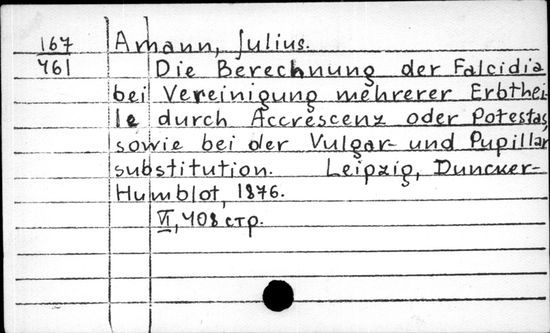 167 Amann, Julius.
461 Die Berechnung der Falcidia
bei Vereinigung mehrerer Erbthei-
le durch Accrescenz oder Potestas,
sowie bei der Vulgar- und Pupillar
substitution. Leipzig, Duncker-
Humblot, 1876.
VI, 408 стр.